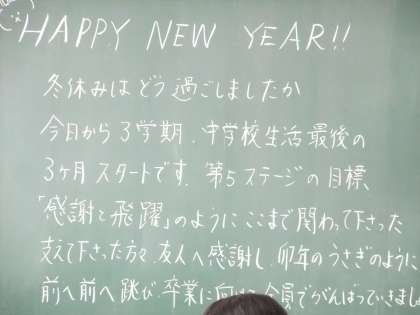 HAPPY NEW YEAR!!
冬休みはどう過ごしましたか
今日から3学期、中学校生活最後の
3ヶ月スタートです。第5ステージの目標
「感謝と飛躍」のようにここまで関わって下さった
支えて下さった方々、友人へ感謝し、卯年のうさぎのように
前へ前へ跳び、卒業に向け全員でがんばっていきまし